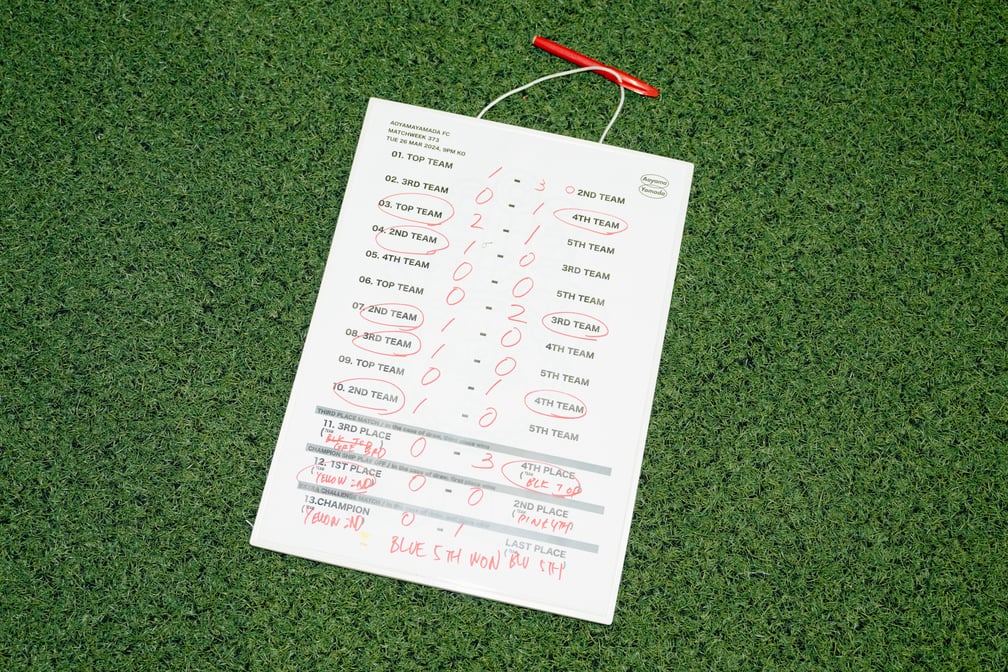 AOYAMAYAMADA FC
MATCHWEEK 373
TUE 26 MAR 2024, 9PM KO
Aoyama
Yamada
01. TOP TEAM 1 - 3 2ND TEAM
02. 3RD TEAM 0 - 1 4TH TEAM
03. TOP TEAM 2 - 1 5TH TEAM
04. 2ND TEAM 1 - 0 3RD TEAM
05. 4TH TEAM 0 - 0 5TH TEAM
06. TOP TEAM 0 - 2 3RD TEAM
07. 2ND TEAM 1 - 0 4TH TEAM
08. 3RD TEAM 1 - 0 5TH TEAM
09. TOP TEAM 0 - 1 4TH TEAM
10. 2ND TEAM 1 - 0 5TH TEAM
THIRD PLACE MATCH / In the case of draw, third place wins
11. 3RD PLACE 0 - 3 4TH PLACE
(TEAM BLK TOP) (TEAM BLK TOP
3RD
CHAMPION SHIP PLAY OFF / In the case of draw, first place wins
12. 1ST PLACE 0 - 0 2ND PLACE
(TEAM YELLOW 2ND) (TEAM PINK 4TH)
CHALLENGE MATCH / In the case of
13. CHAMPION 0 - 1 LAST PLACE
(TEAM YELLOW 2ND (TEAM BLU 5TH)
BLUE 5TH WON